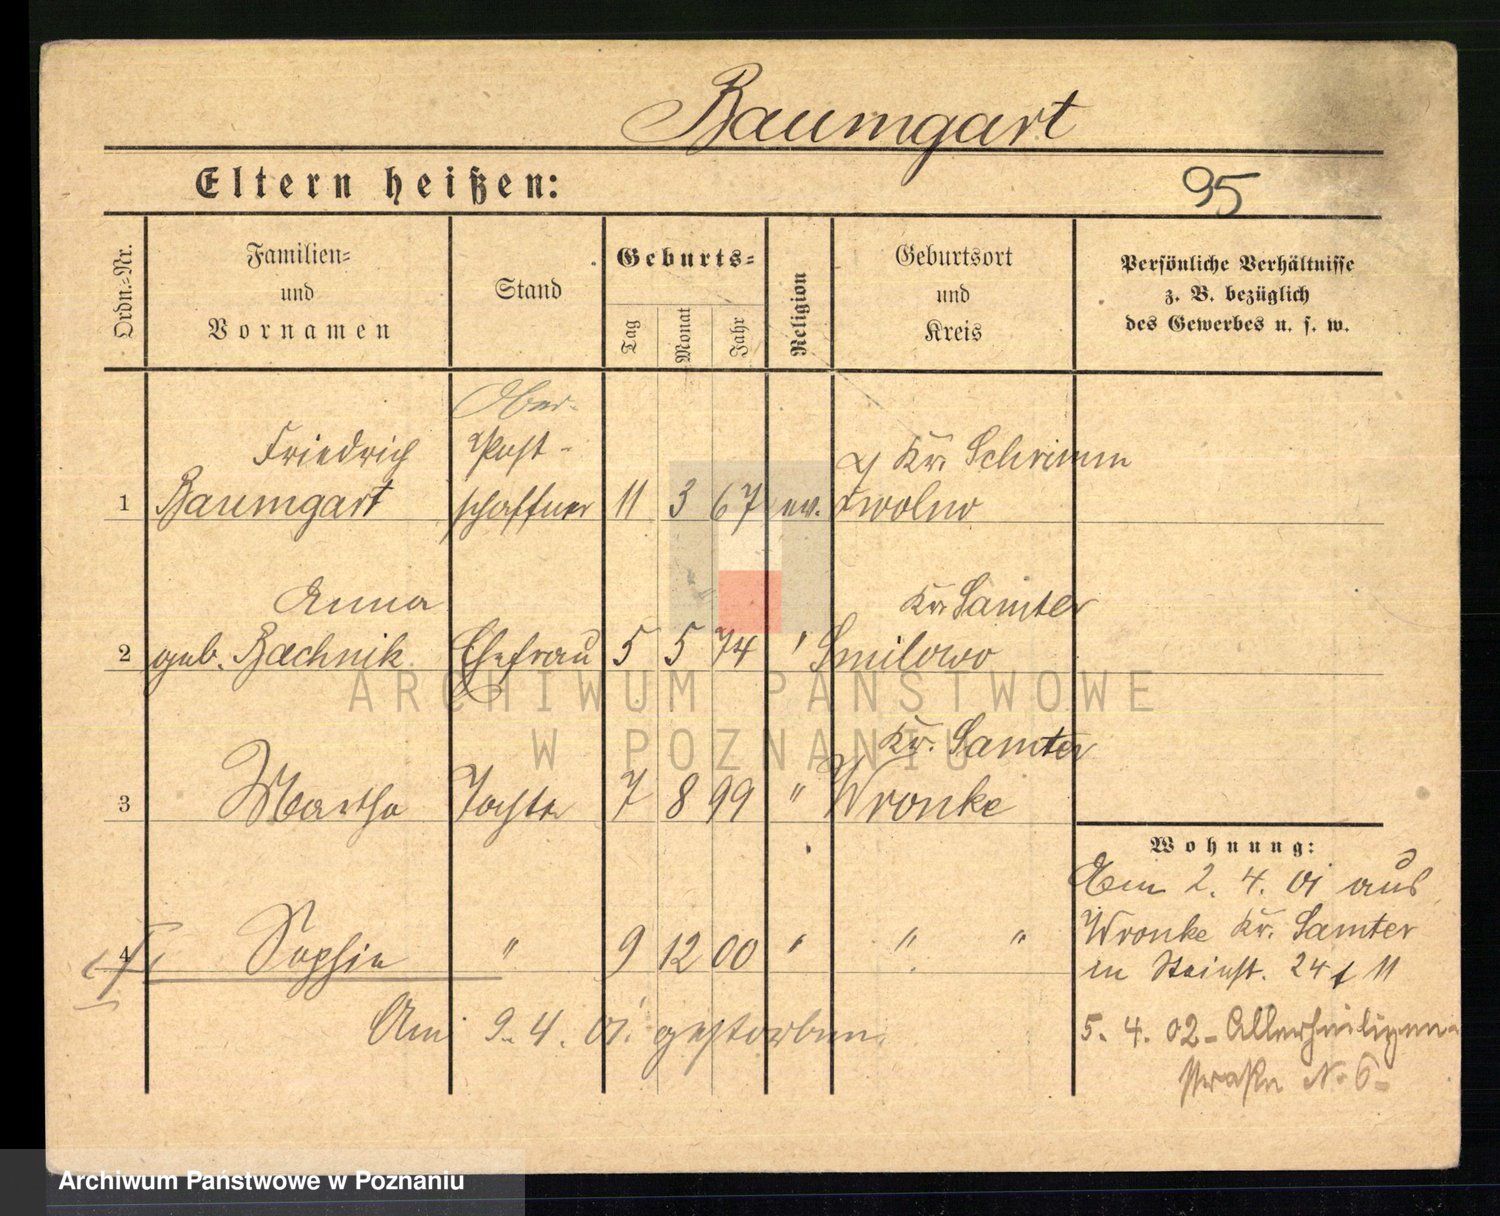 Baumgart
Eltern heißen:
95
Ordn.-Nr.
Familien-
und
Vornamen
Stand
Geburts-
Tag
Monat
Jahr
Religion
Geburtsort
und
Kreis
Persönliche Verhältnisse
z. B. bezüglich
des Gewerbes u. s. w.
Ober-
Friedrich Post- Kr. Schrimm
1 Baumgart schaffner 11 3 67 ev.
Anna Kr. Samter
2 geb. Baechnik Ehefrau 5 5 74 " Smilowo
Kr. Samter
3 Martha Tochter 7 8 99 " Wronke
4 Sophie " 9 12 00 " " "
Am 9. 4. 01. gestorben.
Wohnung:
Am 2. 4. 01 aus
Wronke Kr. Samter
in Steinst. 24 f 11
5. 4. 02 - Allerheiligen-
straße No 6-
ARCHIWUM PAŃSTWOWE
W POZNANIU
Archiwum Państwowe w Poznaniu